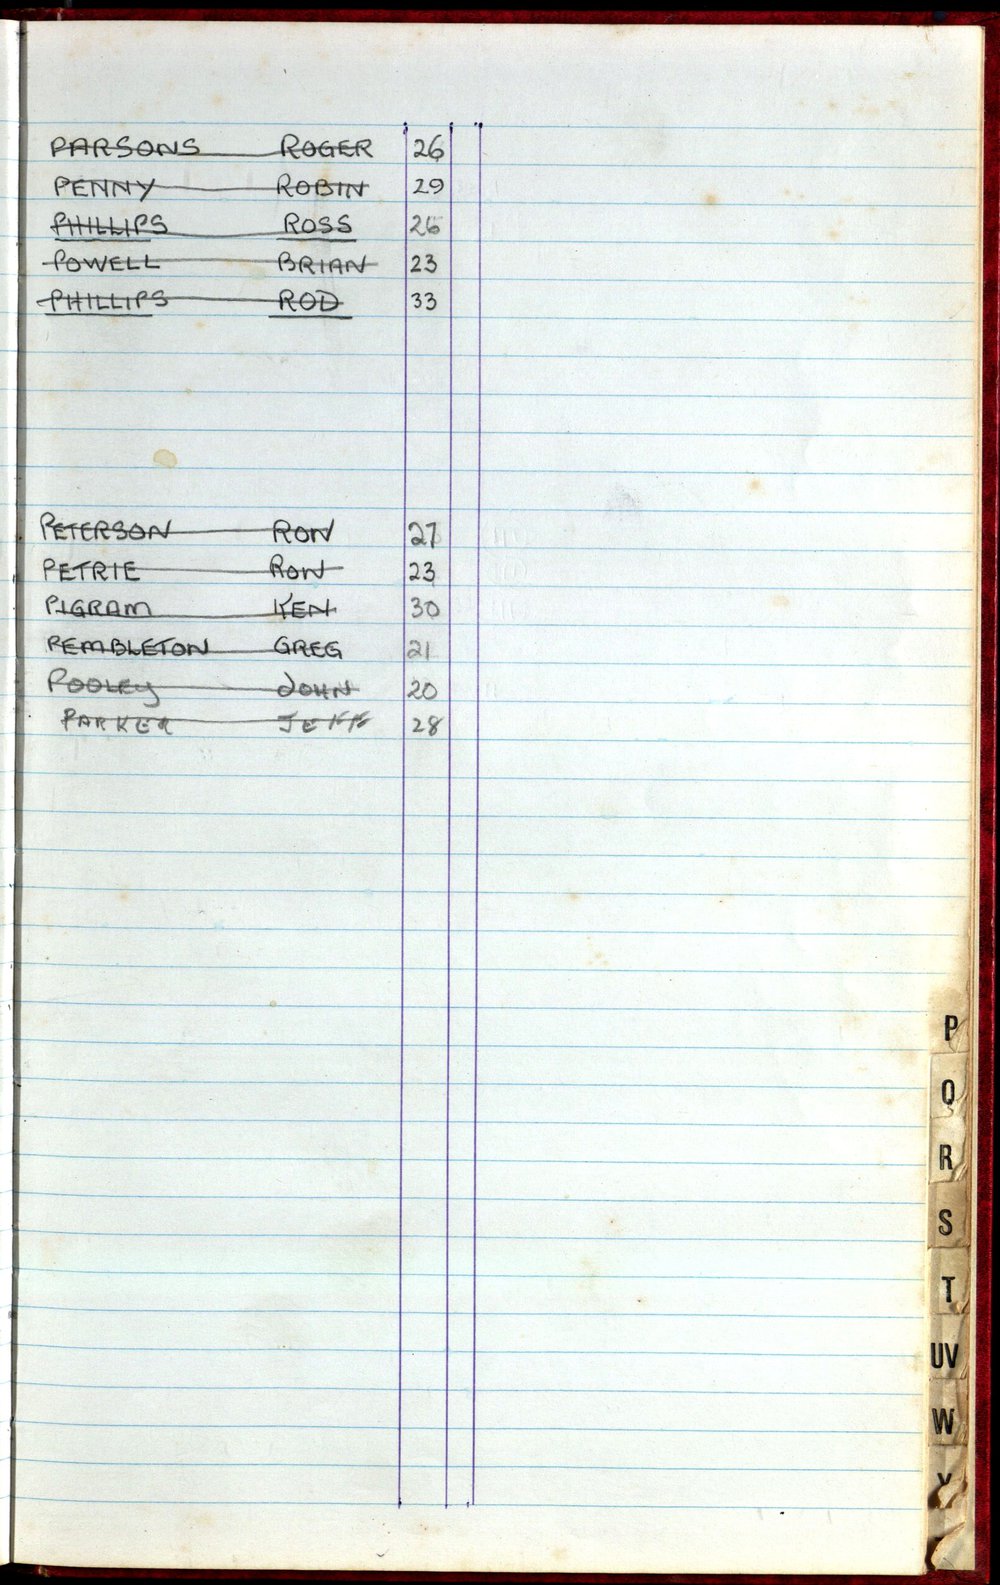 PARSONS ROGER 26
PENNY ROBIN 29
PHILLIPS ROSS 26
POWELL BRIAN 23
PHILLIPS ROD 33
PETERSON RON 27
PETRIE RON 23
PIGRAM KEN 30
PEMBLETON GREG 21
POOLEY JOHN 20
PARKER JEFF 28
P
Q
R
S
T
UV
W